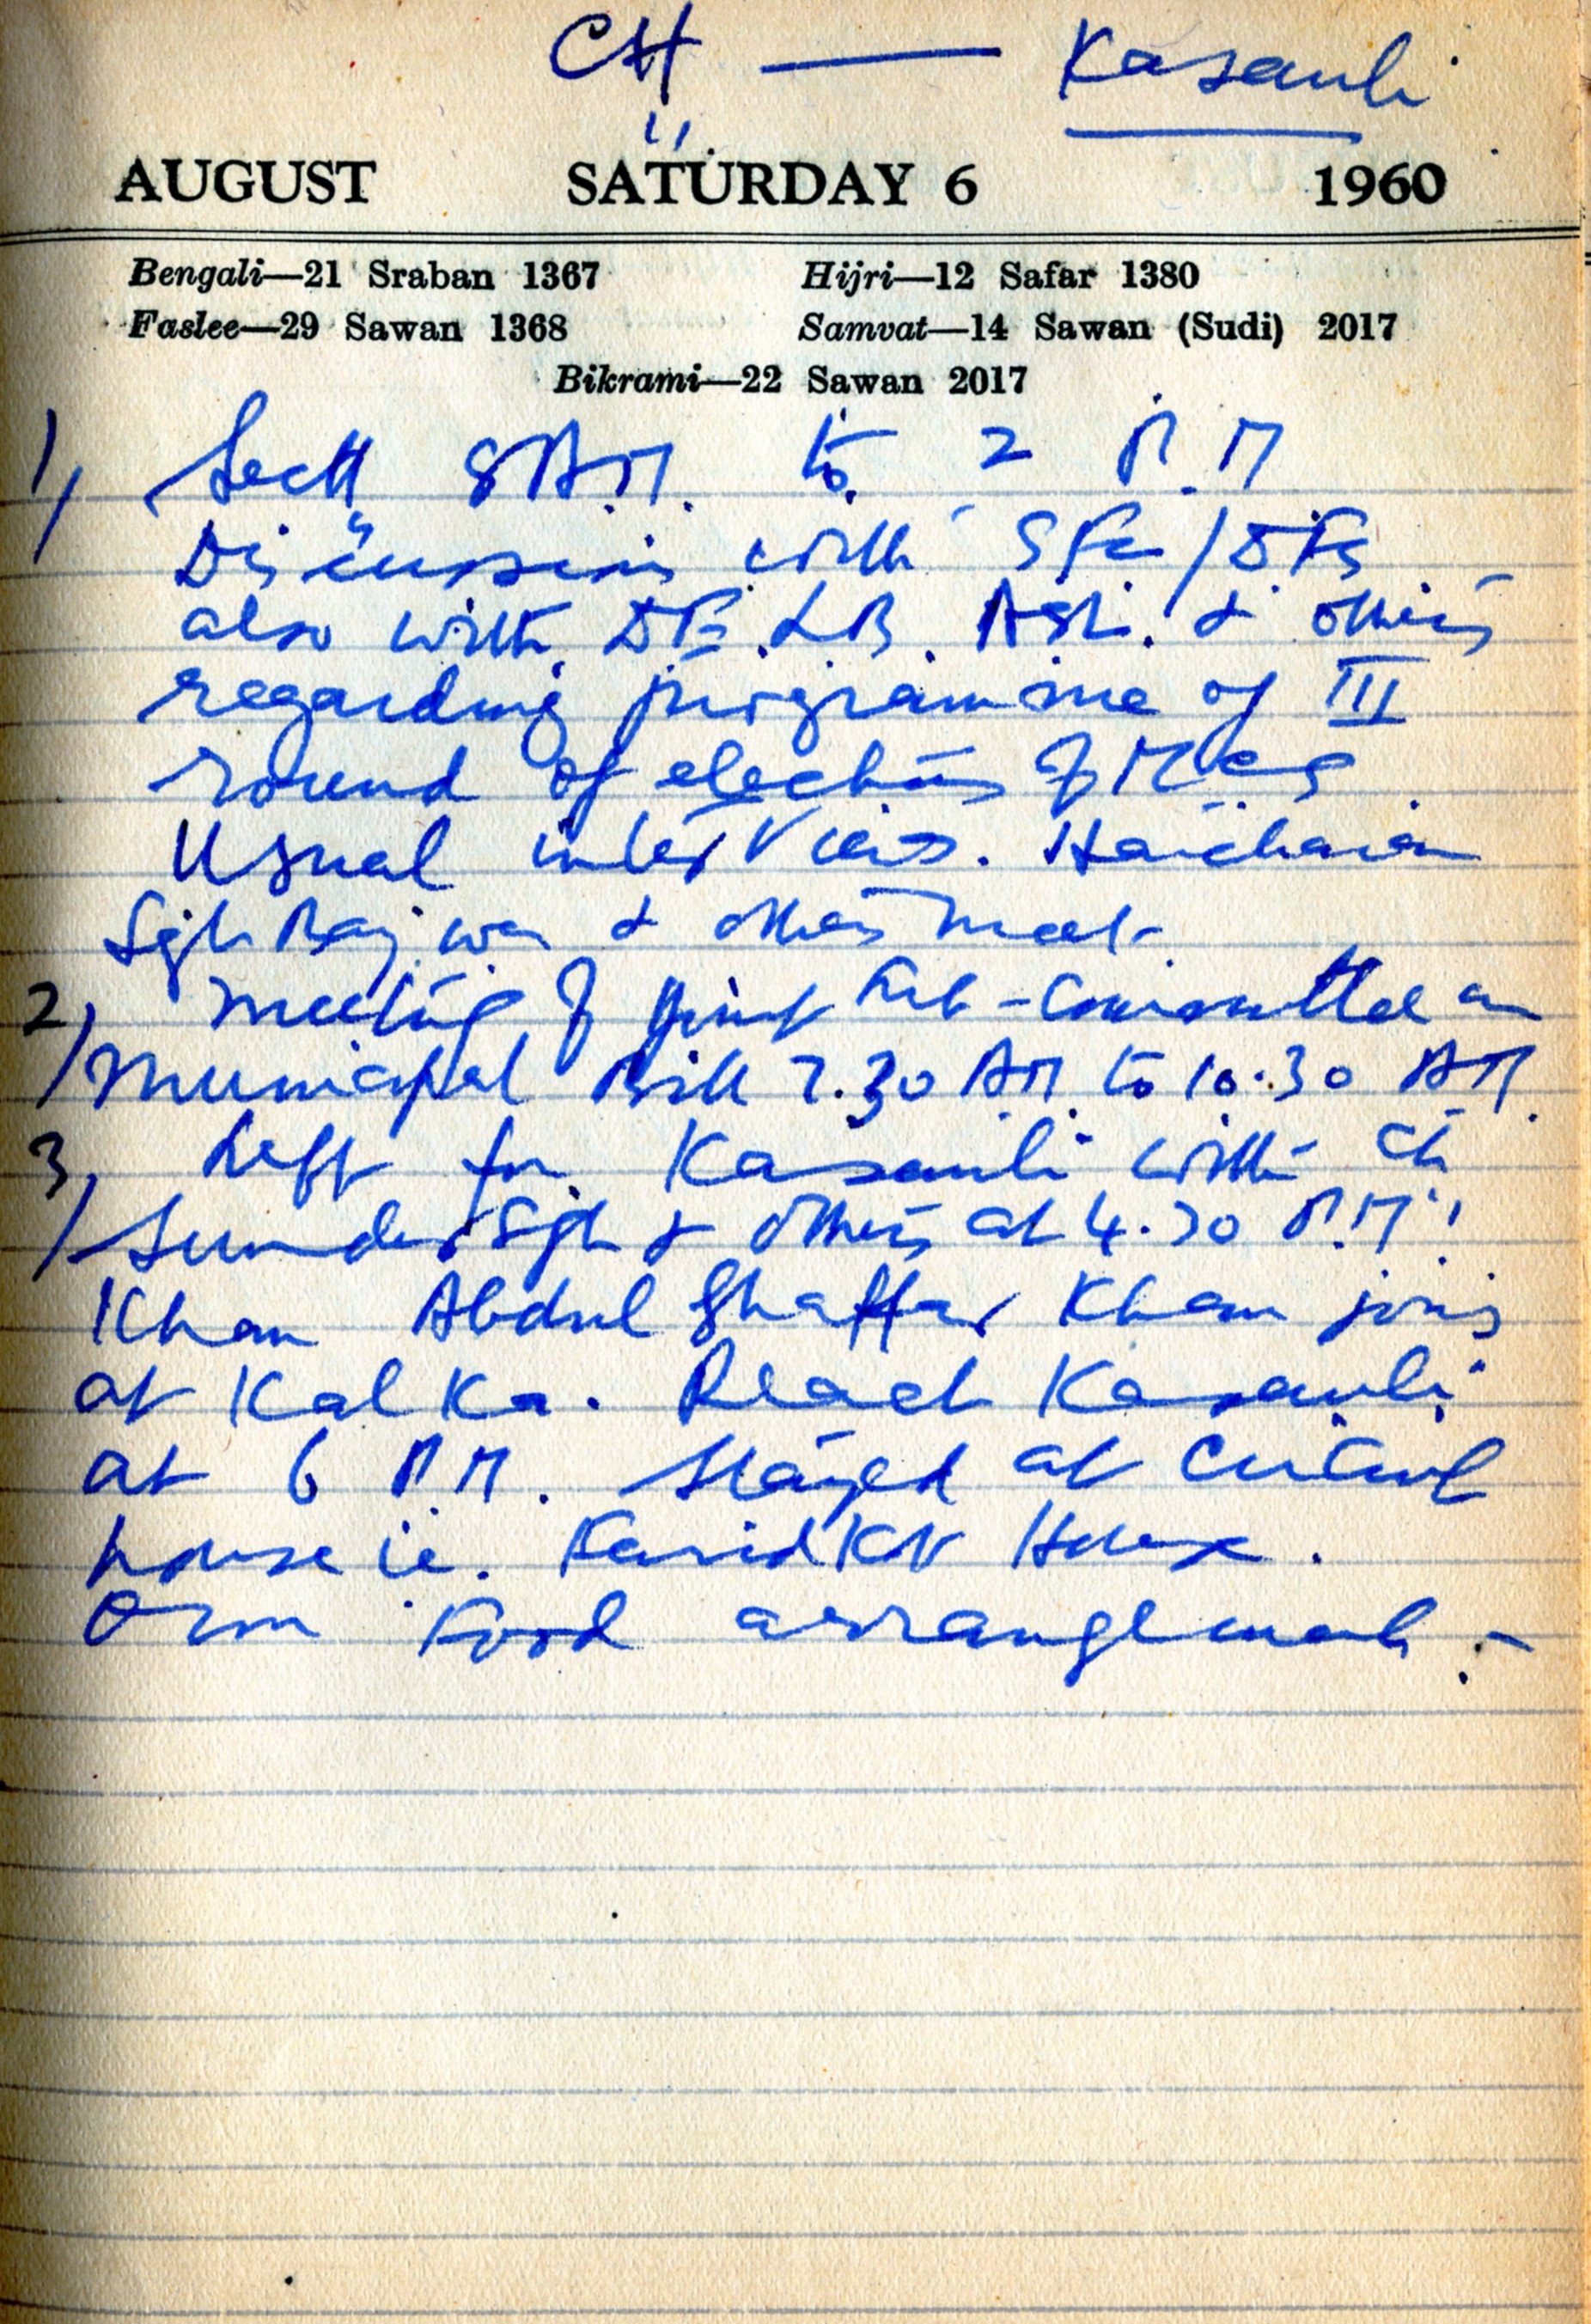 CH — Kasauli
AUGUST SATURDAY 6 1960
Bengali—21 Sraban 1367 Hijri—12 Safar 1380
Faslee—29 Sawan 1368 Samvat—14 Sawan (Sudi) 2017
Bikrami—22 Sawan 2017
1/ Sectt 8 A.M. to 2 P.M
Discussions with
also with L.B. & others
regarding programme of III
round of elections of MCs
Usual interviews. Harcharan
Sgh Bajwa & others meet.
2/ Meeting of Joint Sub-Committee on
Municipal Bill 7.30 AM to 10.30 AM.
3/ Left for Kasauli with Ch
Sunder Sgh & others at 4.30 P.M.
Khan Abdul Ghaffar Khan joins
at Kalka. Reach Kasauli
at 6 P.M. Stayed at Circuit
house ie. Faridkot House.
Own Food arrangement.-